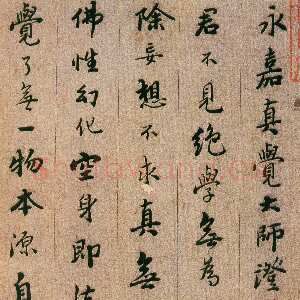 永嘉真覺大師證
君不見絕學無為
除妄想不求真無
佛性幻化空身即法
覺了無一物本源自